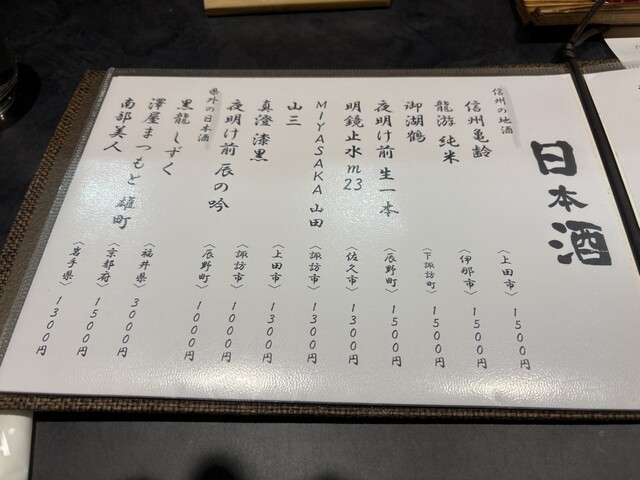 日本酒
信州の地酒
信州亀齢 〈上田市〉 1500円
龍游 純米 〈伊那市〉 1500円
御湖鶴 〈下諏訪町〉 1500円
夜明け前 生一本 〈辰野町〉 1500円
明鏡止水 m23 〈佐久市〉 1300円
MIYASAKA 山田 〈諏訪市〉 1300円
山三 〈上田市〉 1300円
真澄 漆黒 〈諏訪市〉 1000円
夜明け前 辰の吟 〈辰野町〉 1000円
県外の日本酒
黒龍 しずく 〈福井県〉 3000円
澤屋まつもと 雄町 〈京都府〉 1500円
南部美人 〈岩手県〉 1300円